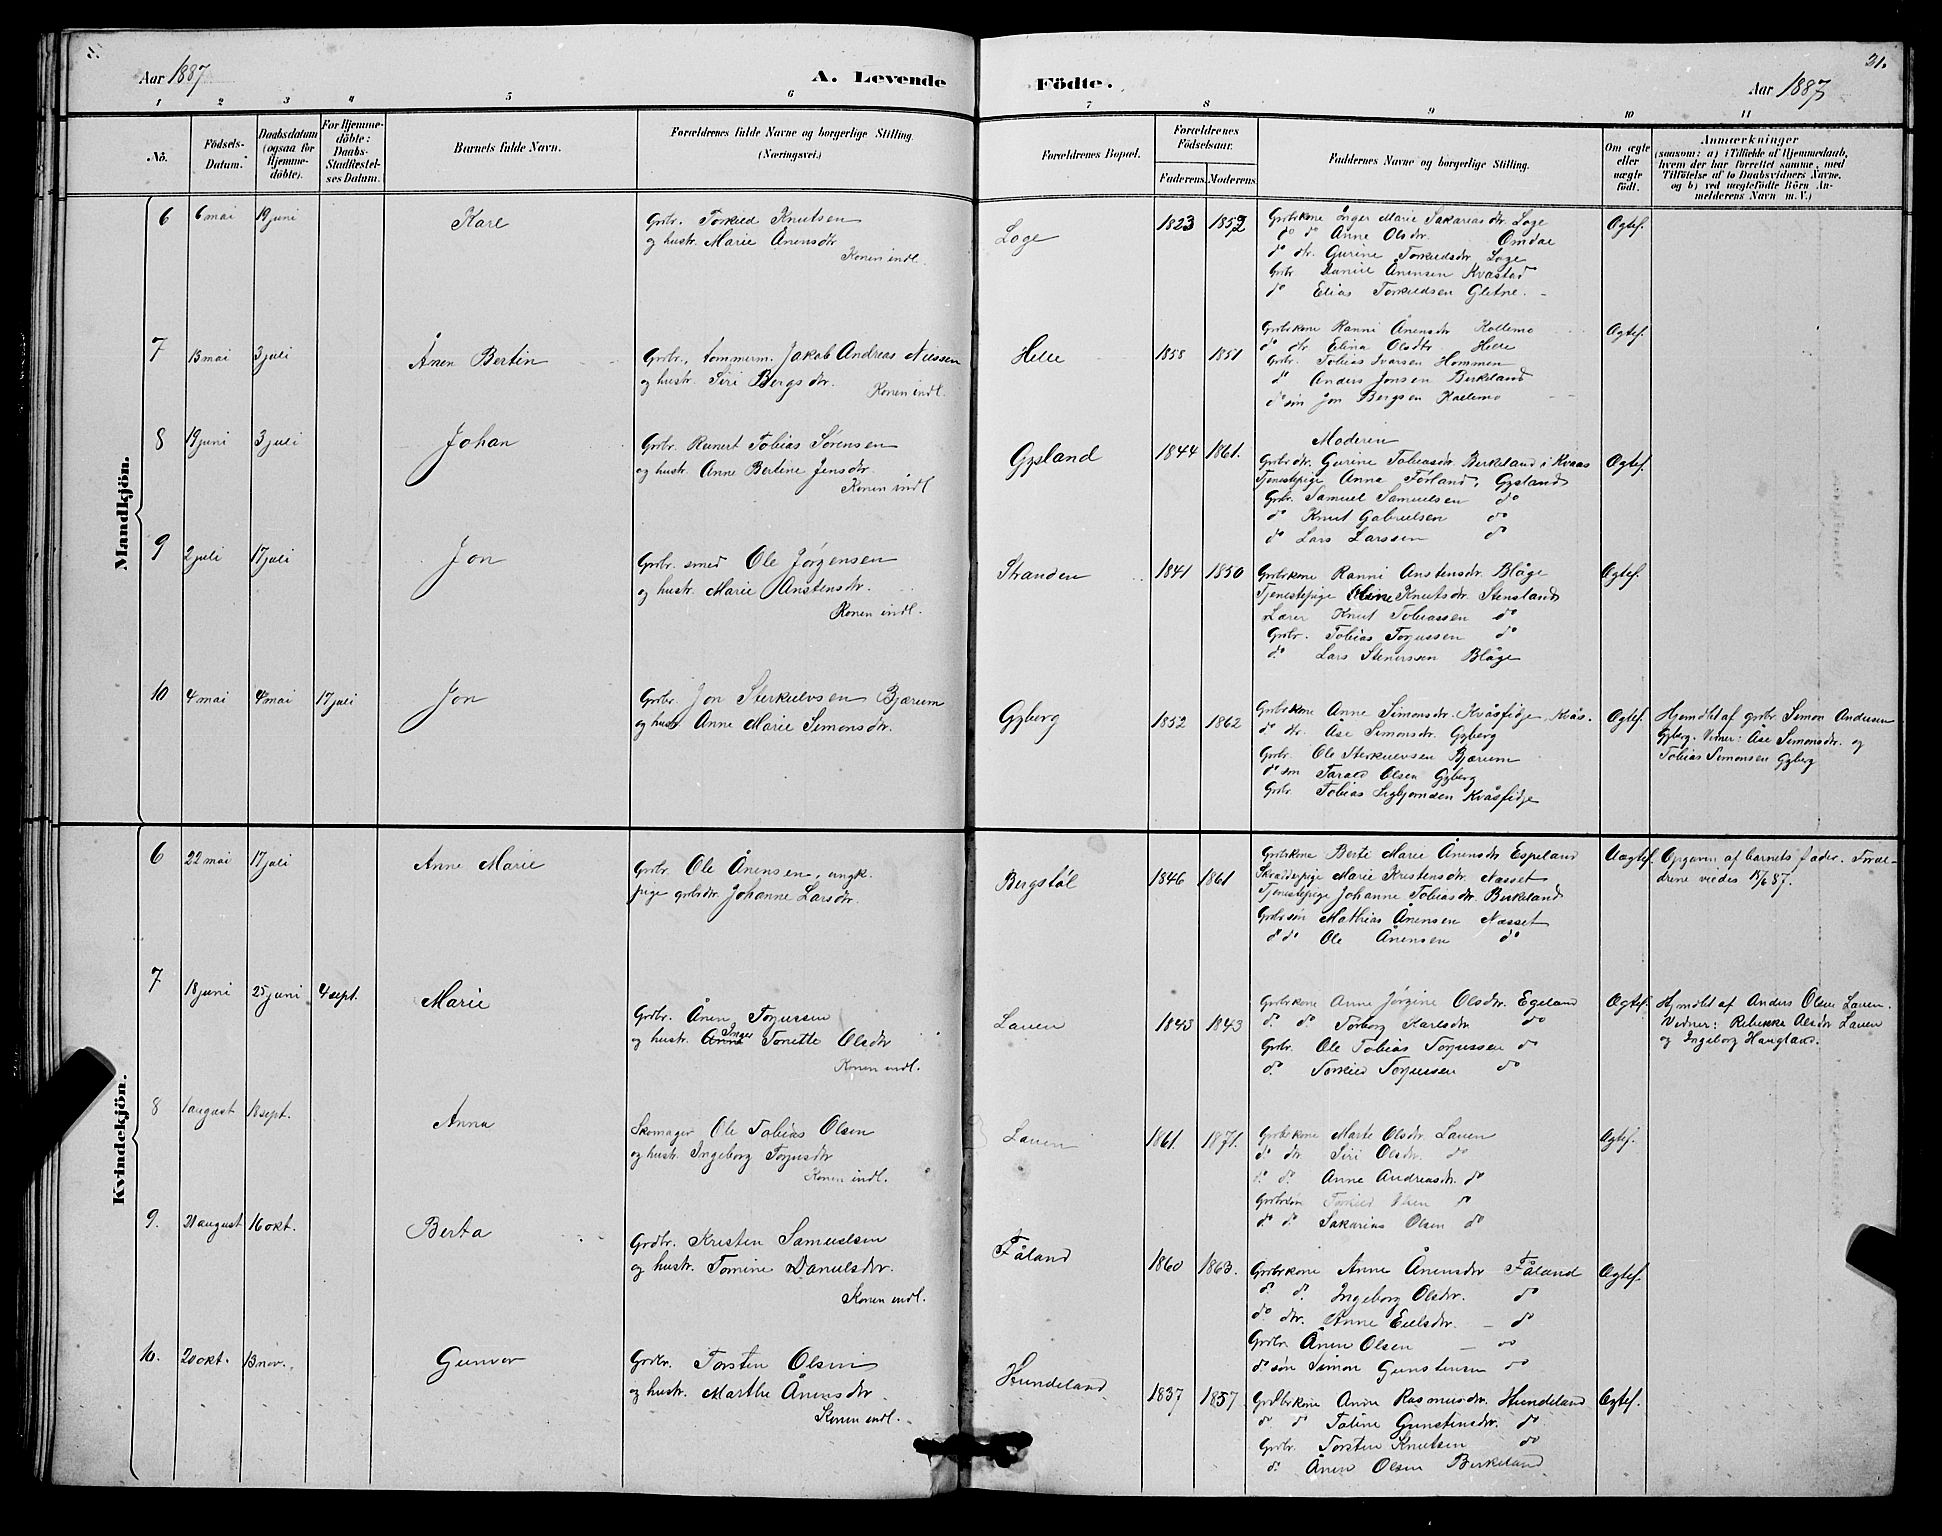 Aar 1887
A. Levende
Födte.
Aar 1887
31.
1 2 3 4 5 6 7 8 9 10 11
No.
Födsels-
Datum.
Daabsdatum
(ogsaa for
Hjemme-
döbte).
For Hjemme-
döbte:
Daabs-
Stadfæstel-
ses Datum.
Barnets fulde Navn.
Forældrenes fulde Navne og borgerlige Stilling.
(Næringsvei.)
Forældrenes Bopæl.
Forældrenes
Födselsaar.
Faderens. Moderens.
Faddernes Navne og borgerlige Stilling.
Om ægte
eller
uægte
födt.
Anmærkninger
(saasom: a) i Tilfælde af Hjemmedaab,
hvem der har forrettet samme, med
Tilföielse af to Daabsvidners Navne,
og b) ved uægtefödte Börn An-
melderens Navn m. V.)
Mandkjön.
6 6 mai 19 juni Karl
Grbr. Torkild Knutsen
og hustr. Marie Ånensdtr
Konen indl.
Loge 1823 1852
Grbrkone Inger Marie Sakariasdtr. Loge
do do Anne Olsdtr. Omdal
do dtr. Gurine Torkildsdtr Loge
Grbr Daniel Ånensen Kvastad
do Elias Torkildsen Glitne.
Ogtef.
7 13 mai 3 juli Ånen Bertin
Grbr., tømmerm. Jakob Andreas Nilssen
og hustr. Siri Bergsdtr.
Konen indl.
Helle 1858 1851
Grbrkone Ranni Ånensdtr Kollemo
do dtr Elina Olsdtr Helle
Grbr. Tobias Ivarsen Hommen
do Anders Jonsen Birkeland
do søn Jon Bergsen Kollemo
Ogtef.
8 19 juni 3 juli Johan
Grbr. Reinert Tobias Sörensen
og hustr. Anne Bertine Jensdtr.
Konen indl
Gysland 1844 1861.
Moderen
Grbrdtr. Gurine Tobiasdtr. Birkeland i Kvaas
Tjenestepige Anna Førland, Gysland
Grbr. Samuel Samuelsen do
do Knut Gabrielsen do
do Lars Larssen do
Ogtef.
9 2 juli 17 juli Jon
Grbr. smed Ole Jørgensen
og hustr. Marie Anstensdtr.
Konen indl.
Stranden 1841 1850
Grbrkone Ranni Anstensdtr. Blåge
Tjenestepige Oline Knutsdtr. Stensland
Lærer Knut Tobiassen do
Grbr. Tobias Torjussen do
do. Lars Stenerssen Blåge
Ogtef.
10 4 mai 4 mai 17 juli Jon
Grbr. Jon Sterkulvsen Bjærum
og hustr Anne Marie Simonsdtr.
Gyberg 1852 1862
Grbrkone Anne Simonsdtr. Kvåsfidje, Kvås.
do dtr. Åse Simonsdtr. Gyberg
Grbr. Ole Sterkulvsen Bjærum
do søn Tarald Olsen Gyberg
Grbr. Tobias Sigbjørnsen Kvåsfidje
Ogtef.
Hjemdöbt af grbr. Simon Andersen
Gyberg. Vidner: Åse Simonsdtr. og
Tobias Simonsen Gyberg
Kvindekjön.
6 22 mai 17 juli Anne Marie
Grbr. Ole Ånensen, ungk.
pige grbrdtr. Johanne Larsdtr.
Bergstøl 1846 1861
Grbrkone Berte Marie Ånensdtr Espeland
Skrædderpige Marie Kristensdtr. Næsset
Tjenestepige Johanne Tobiasdtr. Birkeland
Grbrsøn Mathias Ånensen Næsset
do do Ole Ånensen do
Uægtef.
Opgaven af barnets fader. Foræl-
drene viedes 18/6 87.
7 18 juni 25 juni 4 sept. Marie
Grdbr. Ånen Torjussen
Inger
og hustr. Anne Tonette Olsdtr
Konen indl.
Lauen 1843 1843
Grbrkone Anne Jörgine Olsdtr. Egeland
do. do. Torborg Karlsdtr do
Grbr. Ole Tobias Torjussen do
do. Torkild Torjussen do
Ogtef.
Hjmdöbt af Anders Olsen Lauen.
Vidner: Rebekke Olsdtr Lauen
og Ingeborg Haugland.
8 1 august 18 sept. Anna
Skomager Ole Tobias Olsen
og hustr. Ingeborg Torjusdtr
Konen indl.
Lauen 1861. 1871.
Grbrkone Marte Olsdtr. Lauen
do. dtr. Siri Olsdtr. do
do. do. Anne Andreasdtr. do
Grbrsøn Torkild Olsen do
do. do. Sakarias Olsen do
Ogtef.
9. 21 august 16 okt. Berta
Grdbr. Kristen Samuelsen
og hustr. Tomine Danielsdtr.
Konen indl.
Fåland 1860 1863.
Grbrkone Anne Ånensdtr Fåland
do. do. Ingeborg Olsdtr. do
do. dtr. Anne Eielsdtr. do
Grbr. Ånen Olsen do
do. søn Simon Gunstensen do
Ogtef.
10. 20 okt. 13 nov. Gunvor
Grdbr. Torsten Olsen
og hustr. Marthe Ånensdtr.
Konen indl.
Hundeland 1837 1857
Grdbrkone Anne Rasmusdtr. Hundeland
do do Taline Gunstensdtr. do
Grbr. Torsten Knutsen do
do. Ånen Olsen Birkeland
Ogtef.